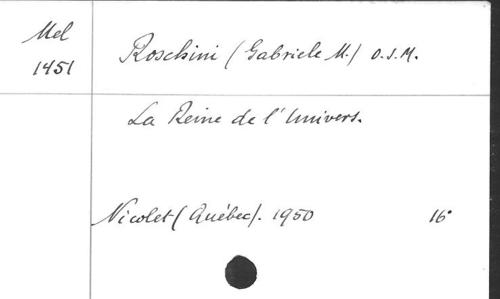 Mel
1451
Roschini (Gabriele M.) O.S.M.
La Reine de l'Univers.
Nicolet (Québec). 1950 16°